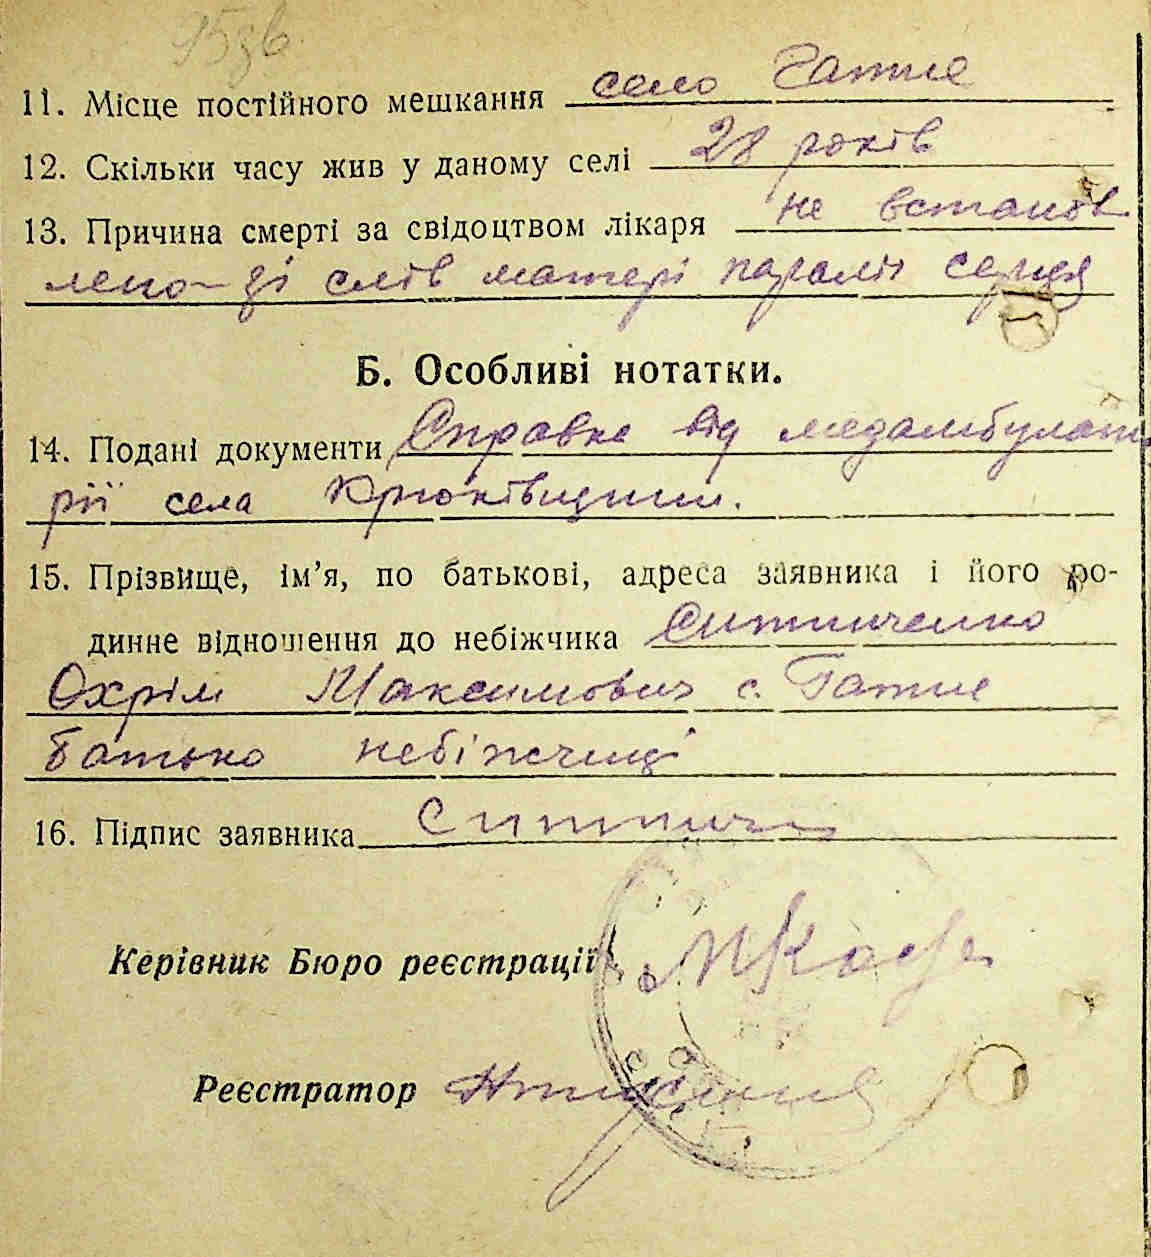 95зв.
11. Місце постійного мешкання село Гатне
12. Скільки часу жив у даному селі 28 років
13. Причина смерті за свідоцтвом лікаря не встанов
лено зі слів матері параліч серця
Б. Особливі нотатки.
14. Подані документи Справка від медамбулато
рії села Крюківщини.
15. Прізвище, ім’я, по батькові, адреса заявника і його ро-
динне відношення до небіжчика Ситниченко
Охрім Максимович с. Гатне
батько небіжчиці
16. Підпис заявника
Керівник Бюро реєстрації
Реєстратор